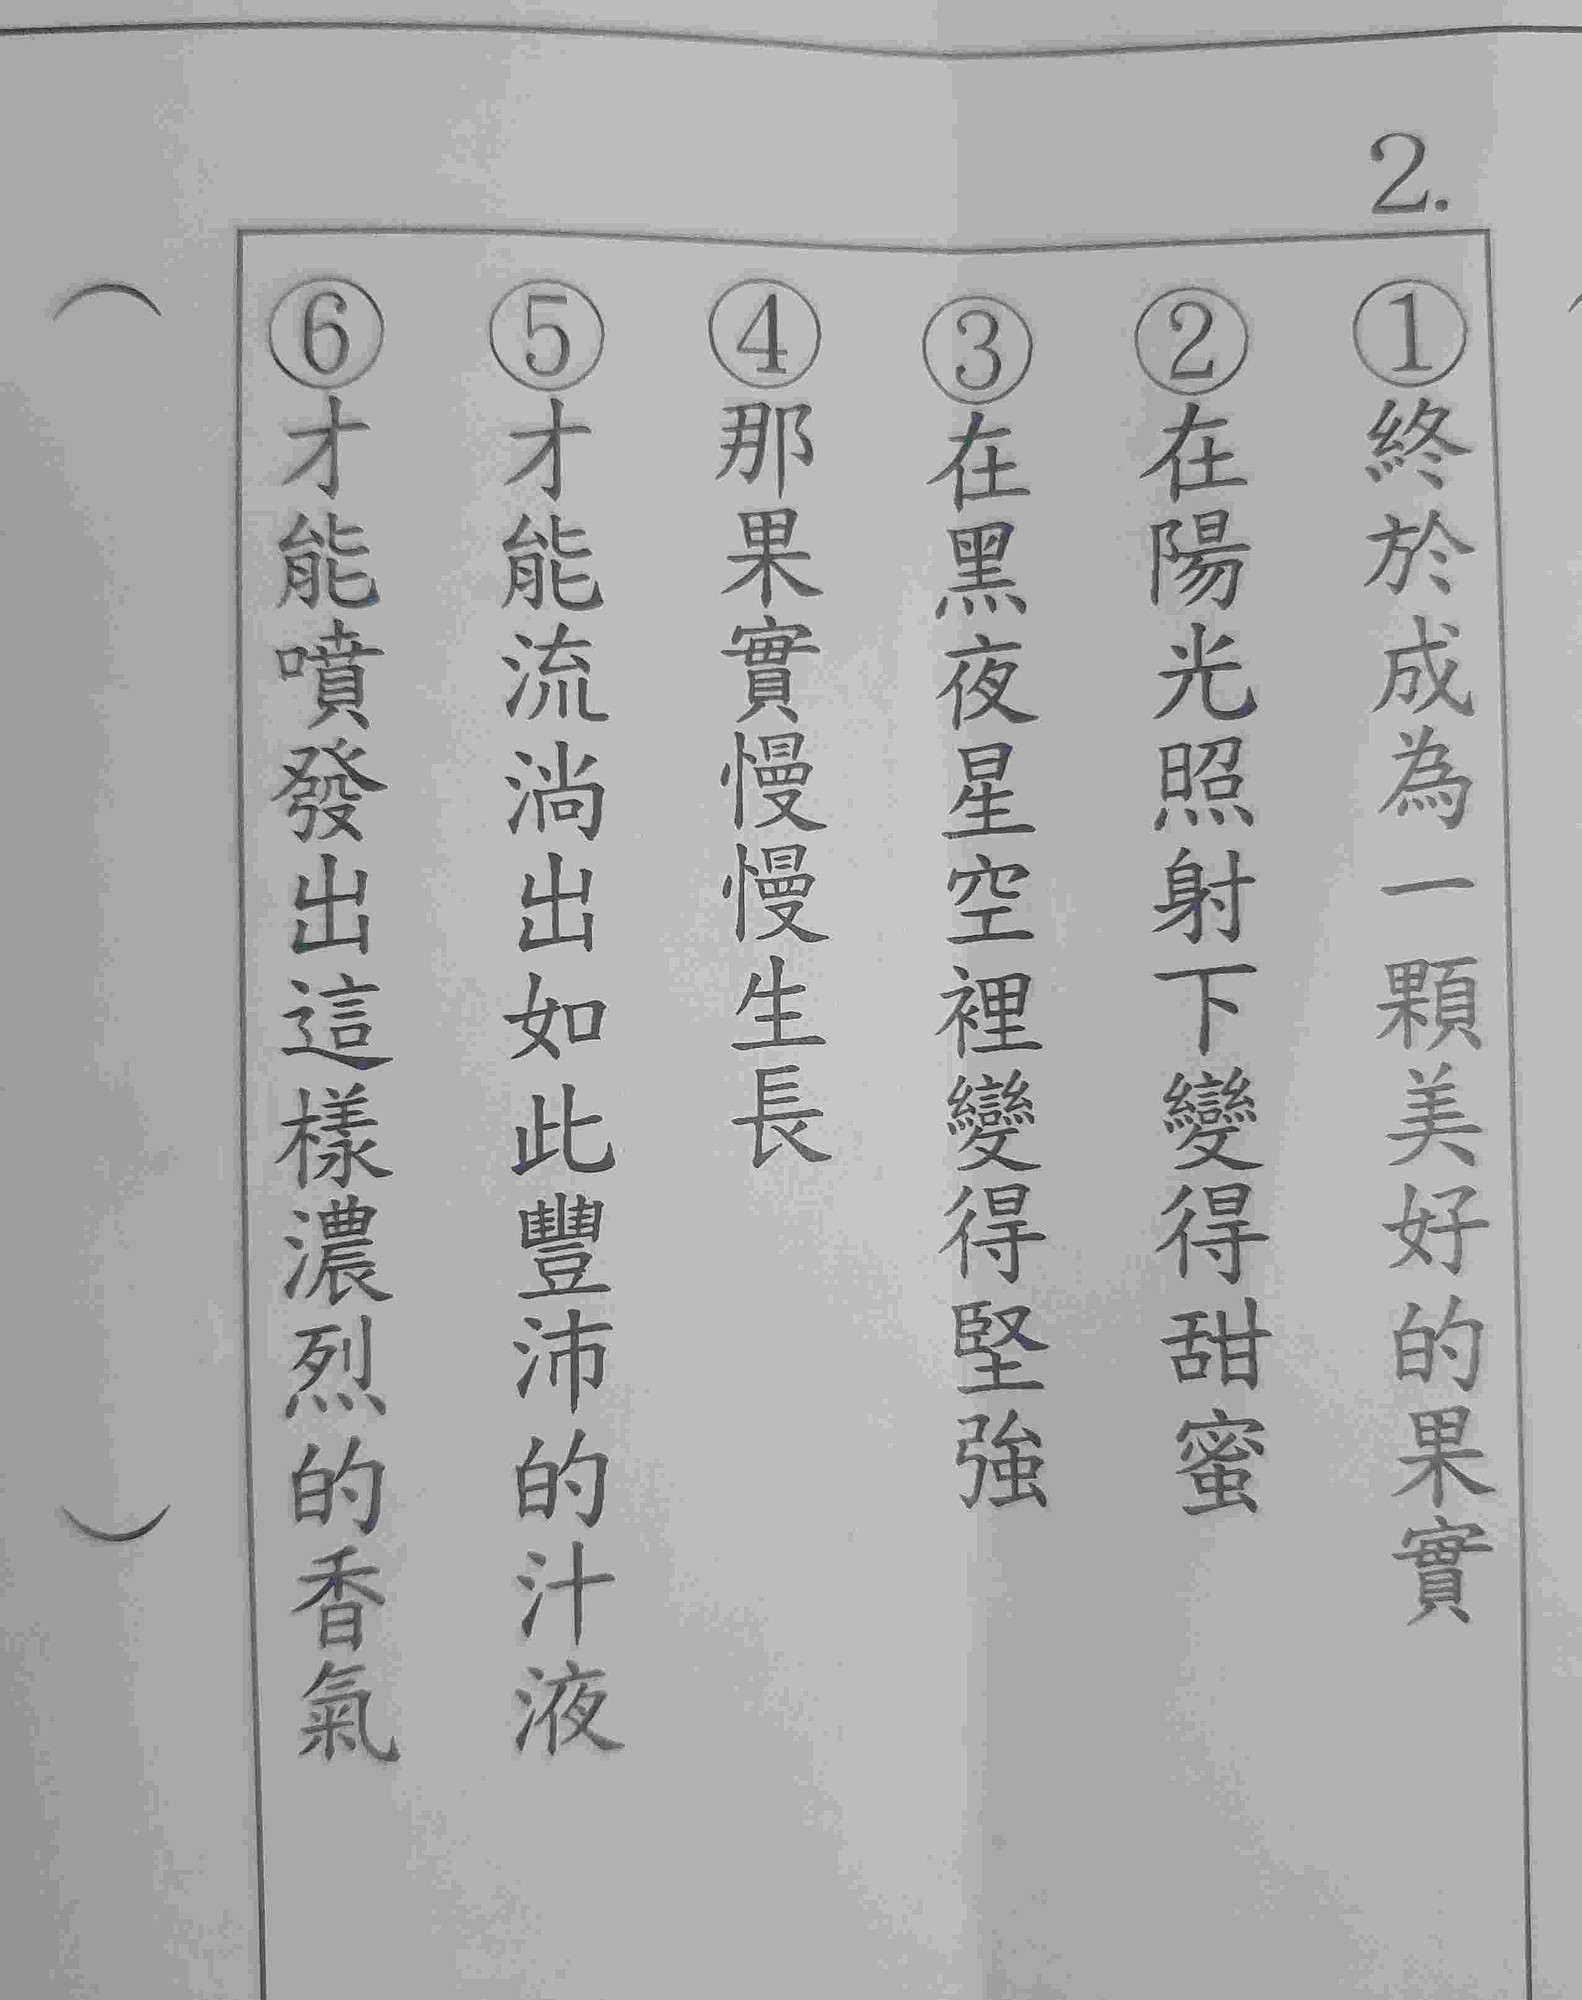 2.
①終於成為一顆美好的果實
②在陽光照射下變得甜蜜
③在黑夜星空裡變得堅強
④那果實慢慢生長
⑤才能流淌出如此豐沛的汁液
⑥才能噴發出這樣濃烈的香氣
（　）